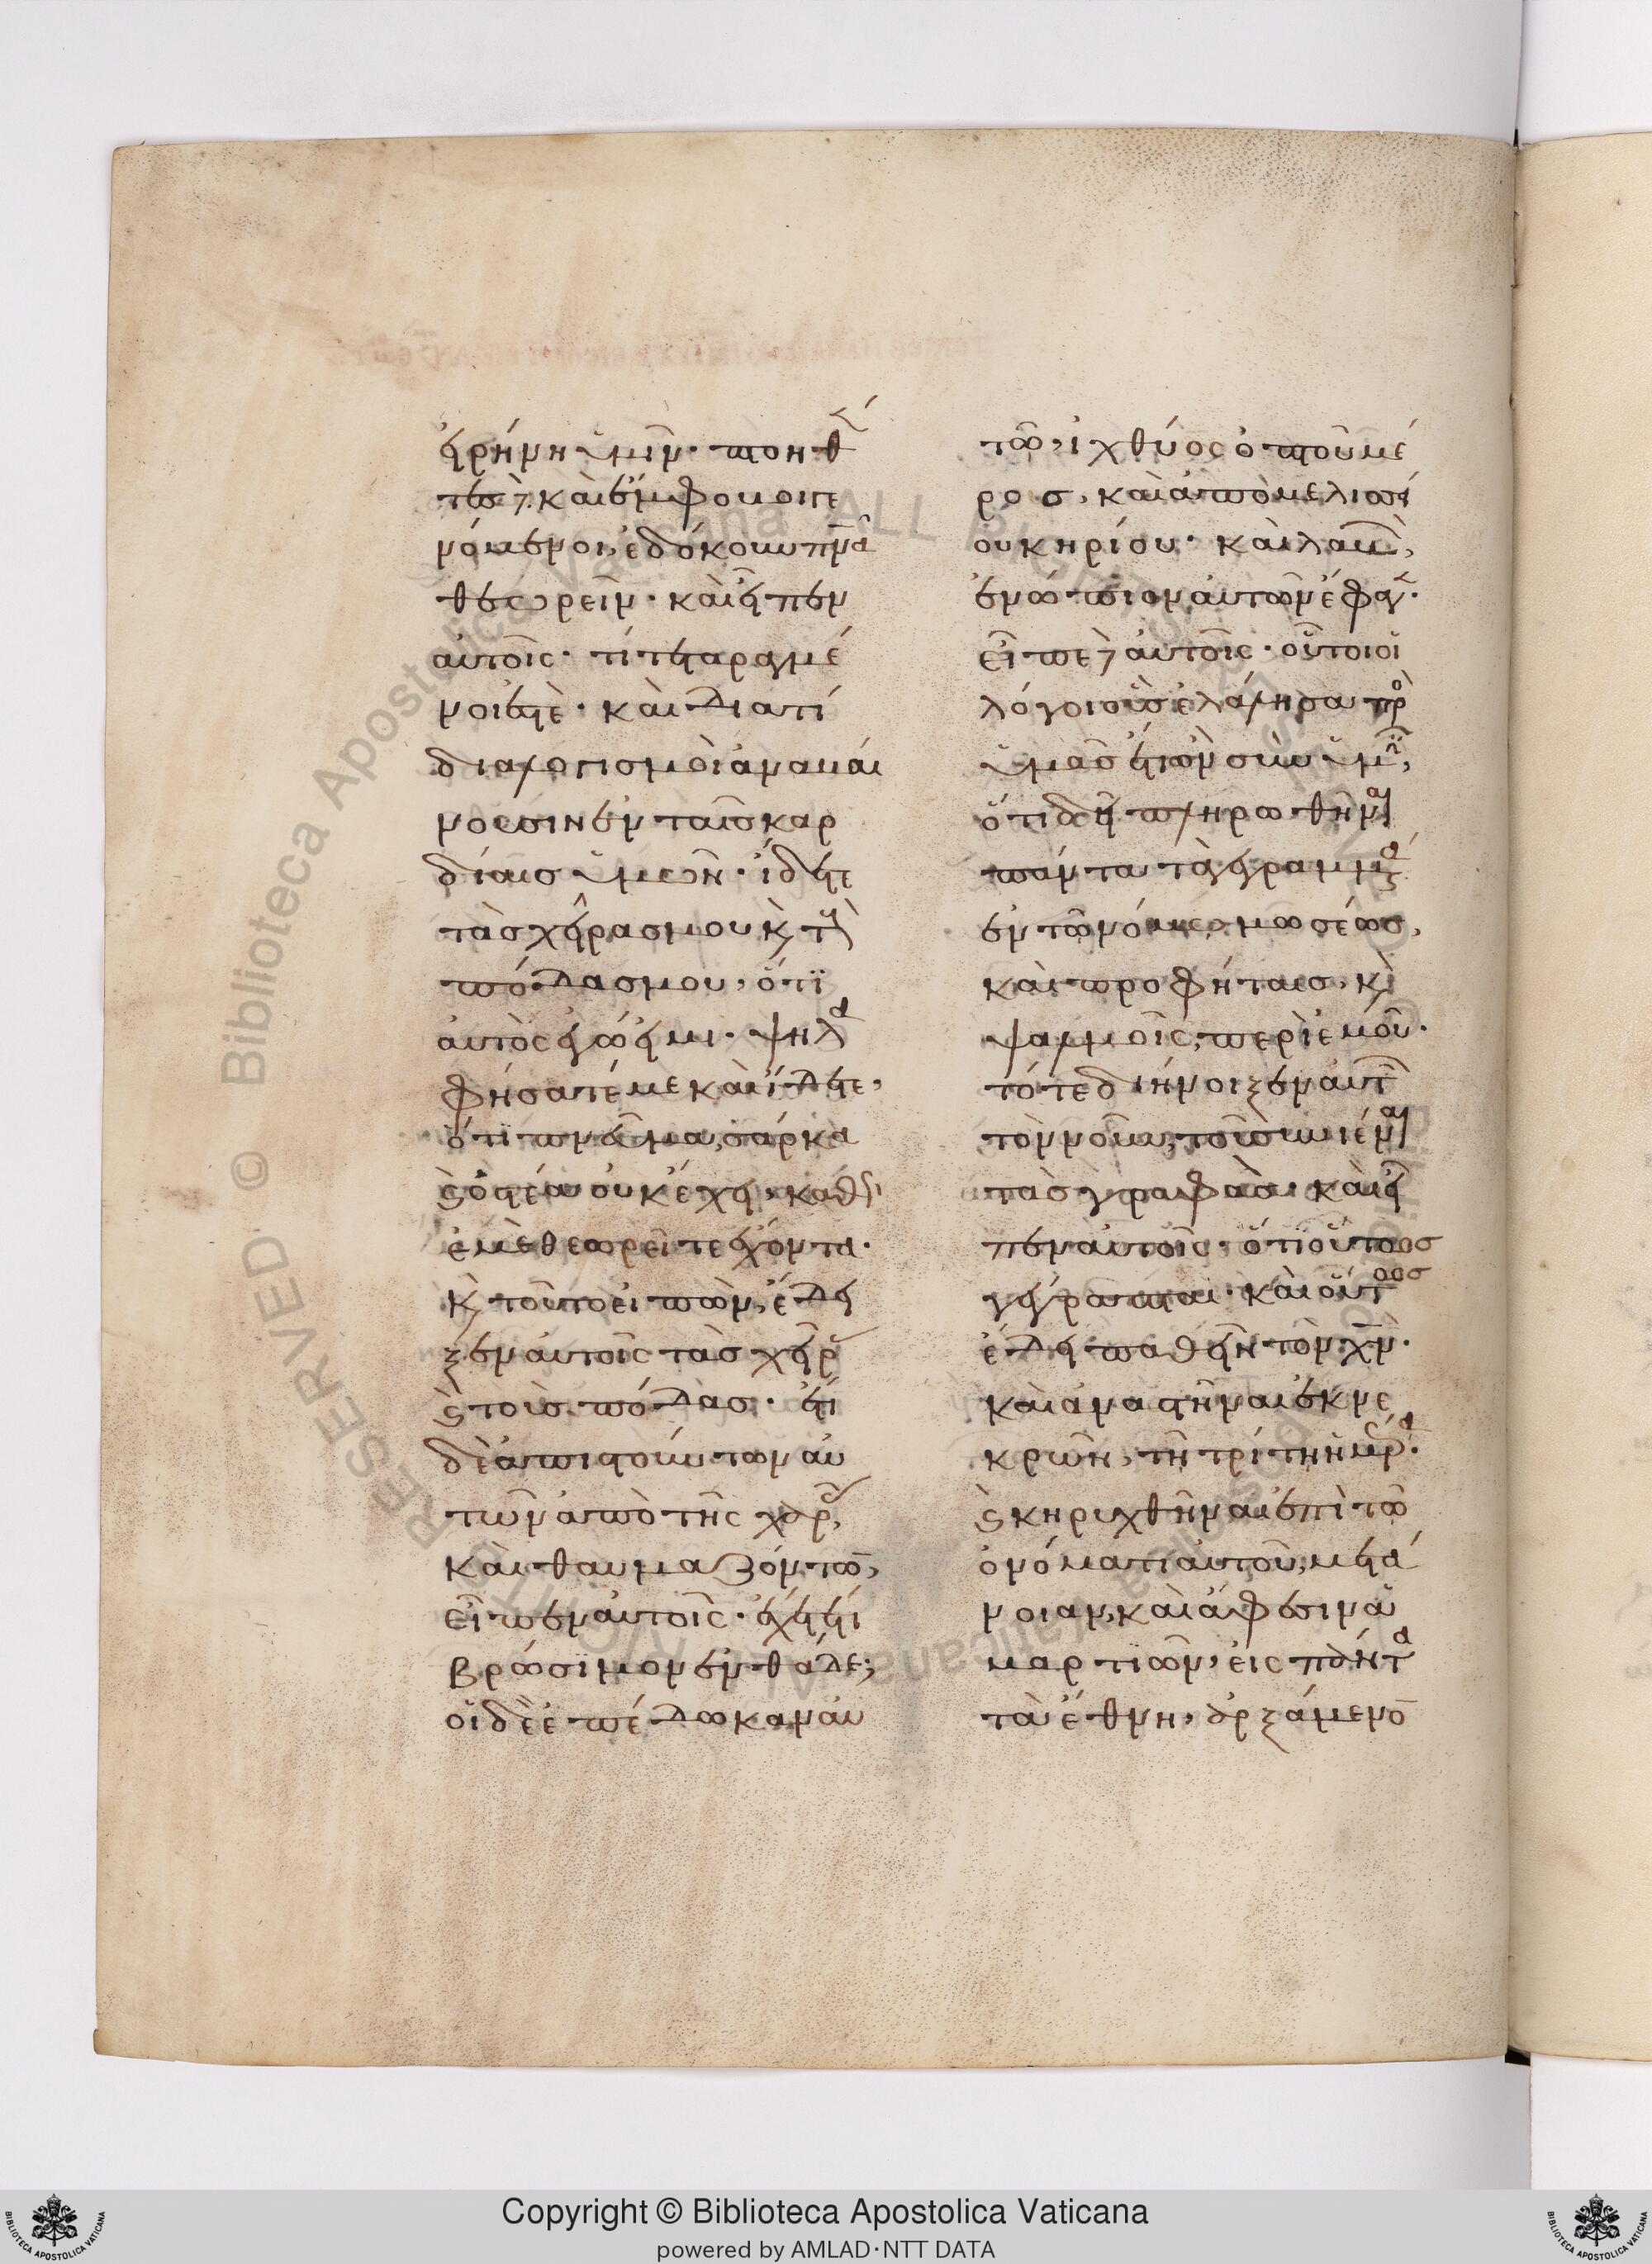 εἰρήνη ὑμῖν· πτοηθέ
τες δὲ καὶ ἔμφοβοι γε
νόμενοι, ἐδόκουν πνᾶ
θεωρεῖν· καὶ εἶπεν
αὐτοῖς· τί τεταραγμέ
νοι ἐστὲ· καὶ διατί
διαλογισμοὶ ἀναβαί
νουσιν ἐν ταῖς καρ
δίαις ὑμῶν· ἴδετε
τὰς χεῖρας μου κ τοὺ
πόδας μου, ὅτι
αὐτὸς ἐγώ εἰμι· ψηλα
φήσατέ με καὶ ἴδετε,
ὅτι πνεῦμα, σάρκα
κ ὀστέα οὐκ ἔχει, καθὼ
ἐμὲ θεωρεῖτε ἔχοντα·
κ τοῦτο εἰπὼν, ἔδει
ξεν αὐτοῖς τὰς χεῖρ
κ τοὺς πόδας· ἔτι
δὲ ἀπιστούντων αὐ
τῶν ἀπὸ τῆς χαρ,
καὶ θαυμαζόντω,
εἶπεν αὐτοῖς· ἔχετέ τι
βρώσιμον ἐνθάδε;
οἱ δὲ ἐπέδωκαν αὐ
τῶ, ἰχθύος ὀπτοῦ μέ
ρος, καὶ ἀπὸ μελισσί
ου κηρίου· καὶ λαβὼ,
ἐνώπιον αὐτῶν ἔφαγ·
εἶπε δὲ αὐτοῖς· οὗτοι οἱ
λόγοι οὓς ἐλάλησα πρὸ
ὑμᾶς ἔτι ὢν σὺν ὑμῖ,
ὅτι δεῖ πληρωθῆναι
πάντα τὰ γεγραμμένα
ἐν τῶ νόμω μωσέως,
καὶ προφήταις, κ
ψαλμοῖς, περὶ ἐμοῦ·
τότε διήνοιξεν αὐτ
τὸν νοῦν, τοῦ συνιέναι
τὰς γραφάς· καὶ εἶ
πεν αὐτοῖς· ὅτι οὕτως
γέγραπται· καὶ οὕτως
ἔδει παθεῖν τὸν χν·
καὶ ἀναστῆναι ἐκ νε
κρῶν, τῆ τρίτη ἡμέρα·
κ κηρυχθῆναι ἐπὶ τῶ
ὀνόματι αὐτοῦ, μετά
νοιαν, καὶ ἄφεσιν ἁ
μαρτιῶν, εἰς πάντα
τὰ ἔθνη, ἀρξάμενο
Copyright © Biblioteca Apostolica Vaticana
powered by AMLAD·NTT DATA